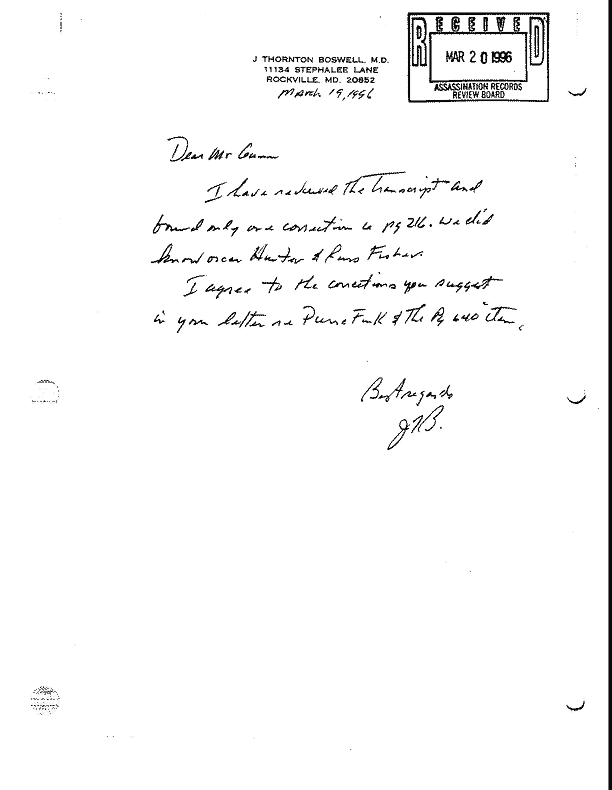 RECEIVED
MAR 20 1996
ASSASSINATION RECORDS
REVIEW BOARD
J THORNTON BOSWELL, M.D.
11134 STEPHALEE LANE
ROCKVILLE, MD. 20852
March 19, 1996
Dear Mr Gunn
I have reviewed the transcript and
found only one correction pg 216. We did
know Oscar Hunter & Russ Fisher.
I agree to the corrections you suggest
in your letter re Pierre Finck & the Pg item.
Best regards
JTB.